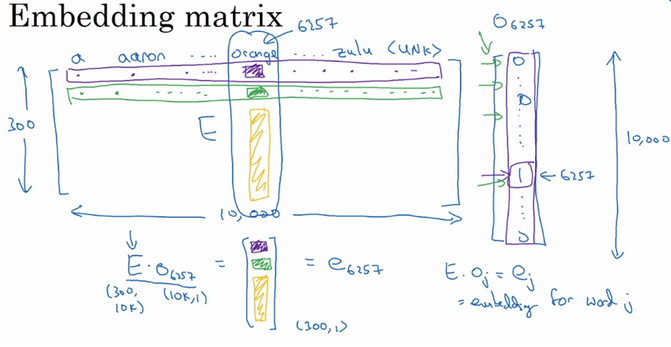 Embedding matrix
6257
O6257
a aaron ..... orange ..... zulu <UNK>
0
0
300
E
10,000
1 ← 6257
0
10,000
E · O6257 = [ ] = e6257
(300, 10K) (10K,1)
(300,1)
E · Oj = ej
= embedding for word j